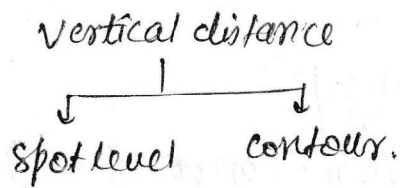 Vertical distance
spot level contour.